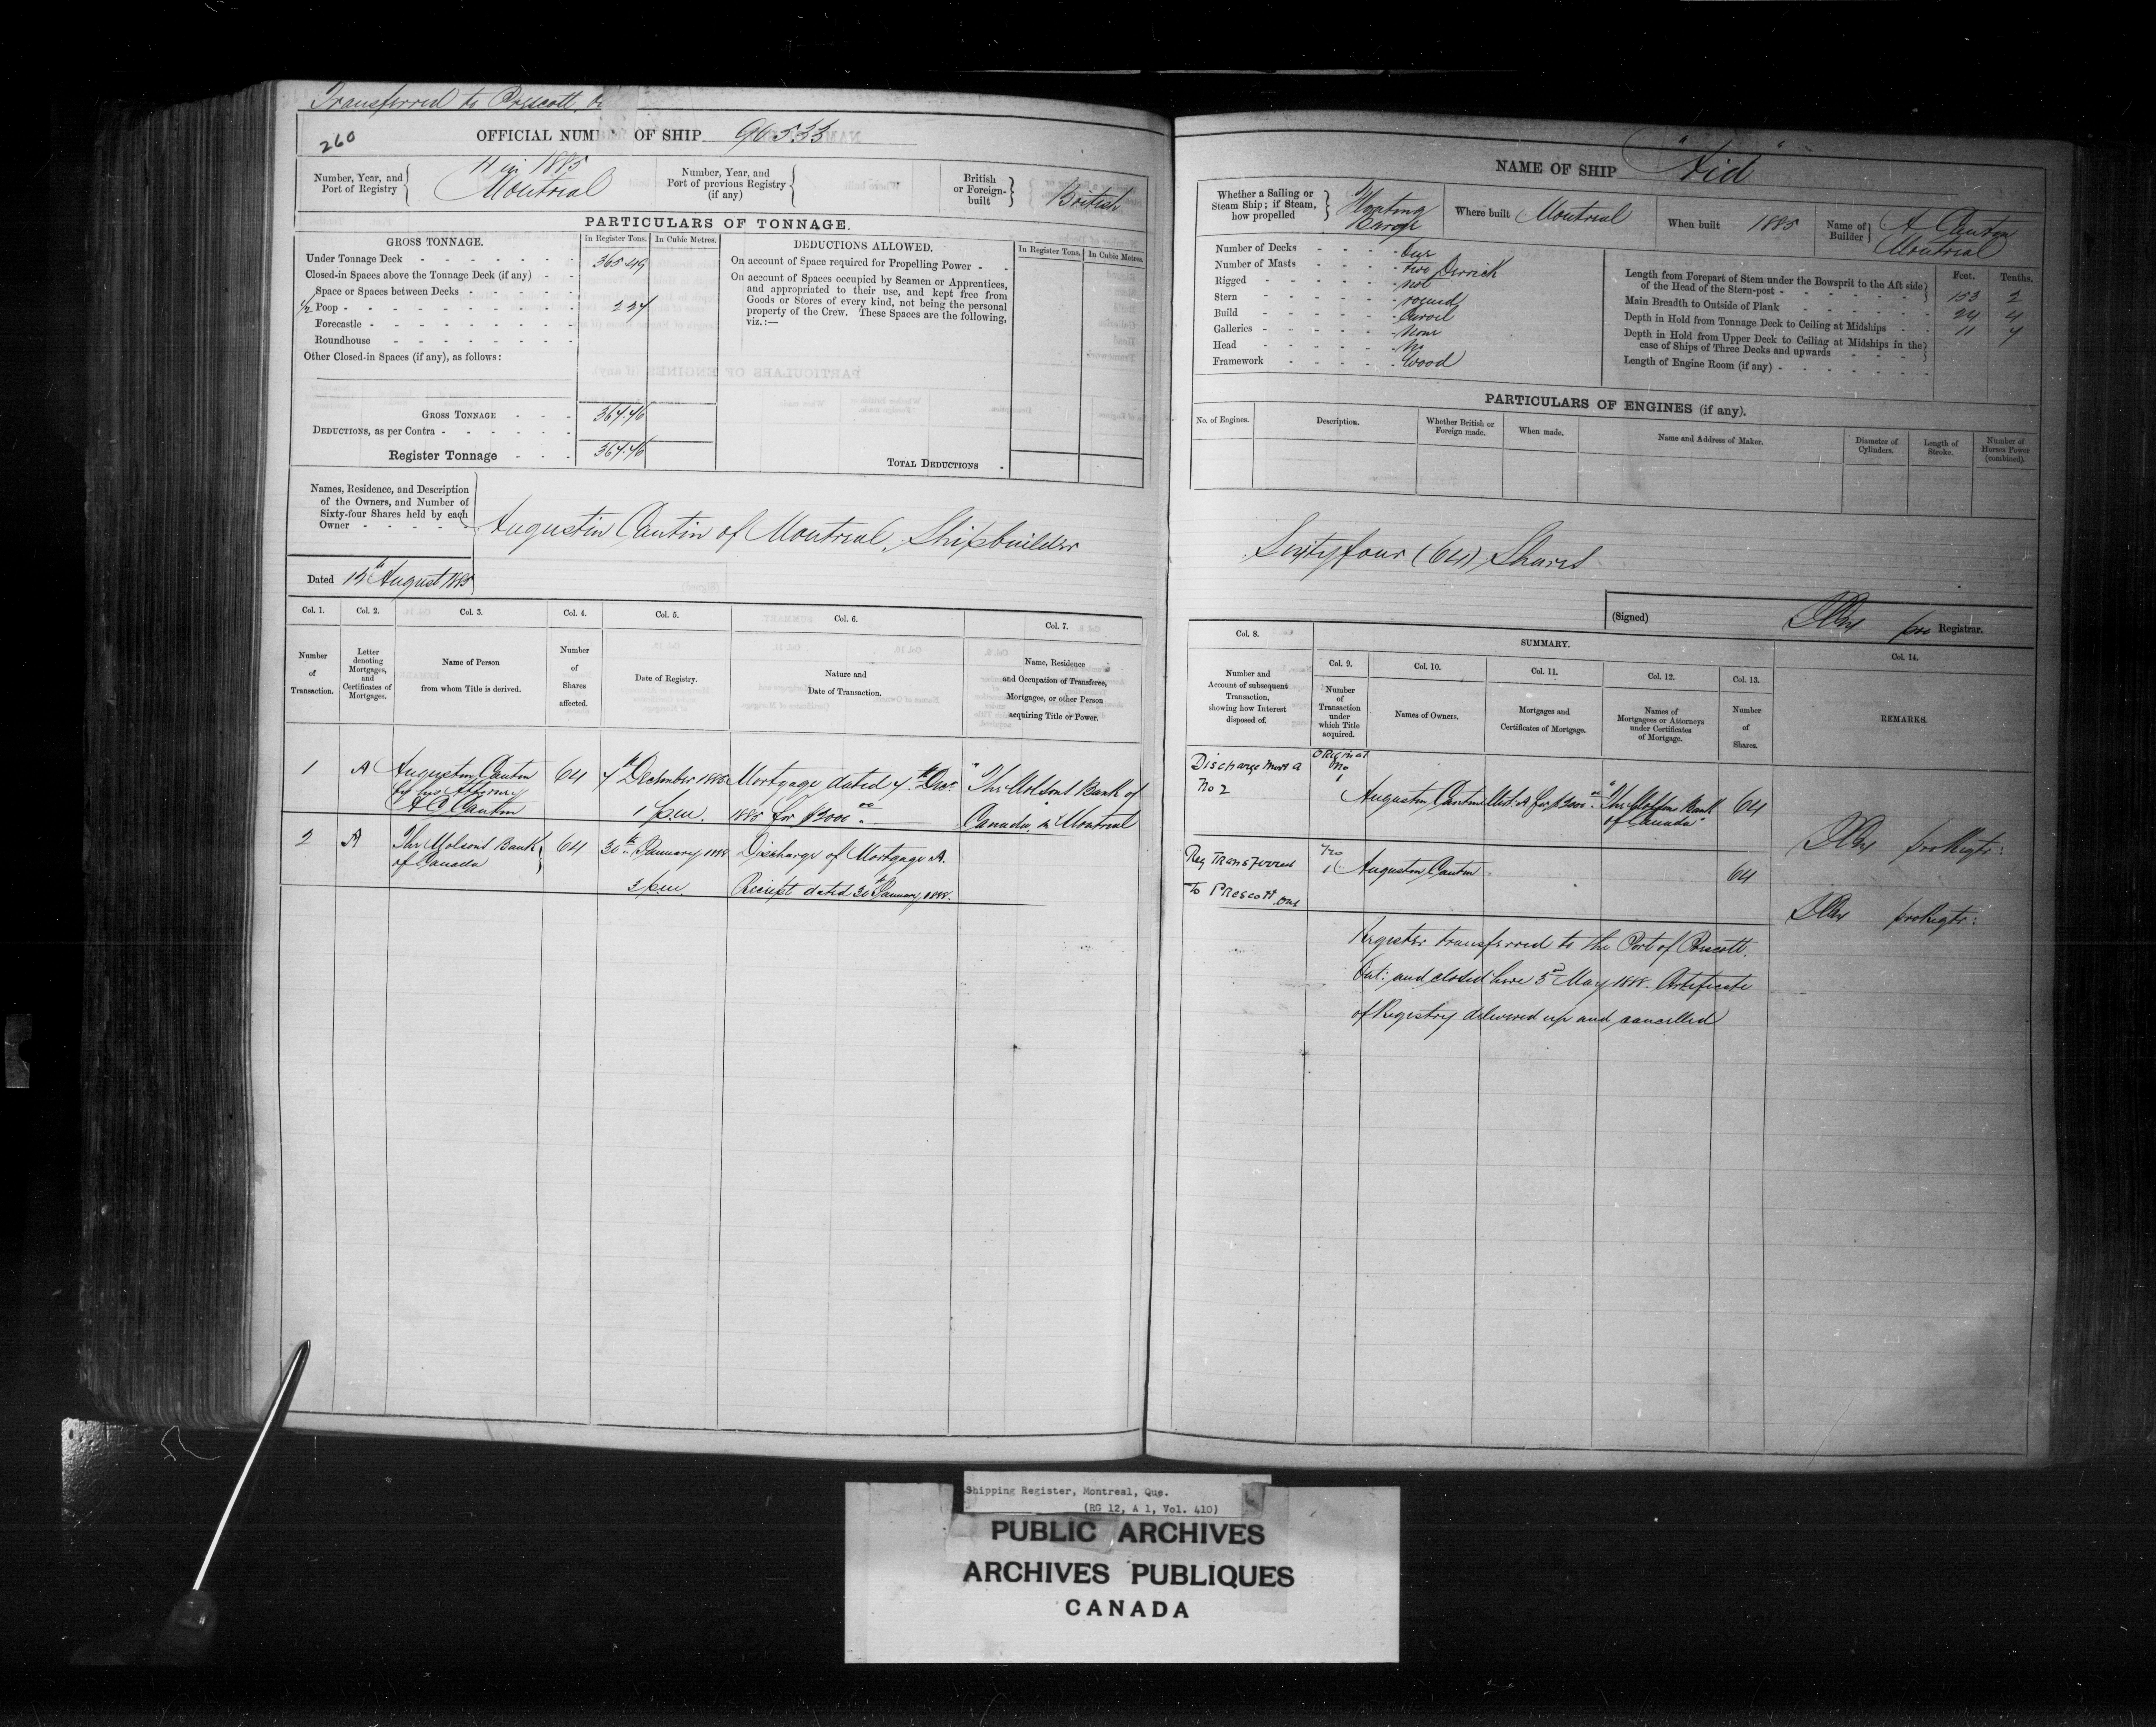 Transferred to Prescott, O
260
OFFICIAL NUM OF SHIP 90533
Number, Year, and Port of Registry
11 in 1885
Montreal
Number, Year, and Port of previous Registry (if any)
British or Foreign-built
British
PARTICULARS OF TONNAGE.
GROSS TONNAGE.
In Register Tons.
In Cubic Metres.
DEDUCTIONS ALLOWED.
In Register Tons.
In Cubic Metres.
Under Tonnage Deck 365.49
Closed-in Spaces above the Tonnage Deck (if any)
Space or Spaces between Decks
1/2 Poop 2 27
Forecastle
Roundhouse
Other Closed-in Spaces (if any), as follows:
GROSS TONNAGE 367.76
DEDUCTIONS, as per Contra
Register Tonnage 367.76
On account of Space required for Propelling Power
On account of Spaces occupied by Seamen or Apprentices, and appropriated to their use, and kept free from Goods or Stores of every kind, not being the personal property of the Crew. These Spaces are the following, viz.:—
TOTAL DEDUCTIONS
Names, Residence, and Description of the Owners, and Number of Sixty-four Shares held by each Owner
Augustin Cantin of Montreal, Shipbuilder
Dated August 1885
Col. 1.
Col. 2.
Col. 3.
Col. 4.
Col. 5.
Col. 6.
Col. 7.
Number of Transaction.
Letter denoting Mortgages, and Certificates of Mortgages.
Name of Person from whom Title is derived.
Number of Shares affected.
Date of Registry.
Nature and Date of Transaction.
Name, Residence and Occupation of Transferee, Mortgagee, or other Person acquiring Title or Power.
1 A Augustin Cantin by his Attorney A C Cantin 64 7th December 1885 1 p.m. Mortgage dated 7th Decr 1885 for $3000 00 "The Molsons Bank of Canada" in Montreal
2 A The Molsons Bank of Canada 64 30th January 1888 3 p.m. Discharge of Mortgage A. Receipt dated 30th January 1888.
NAME OF SHIP "Aid"
Whether a Sailing or Steam Ship; if Steam, how propelled
Floating Barge
Where built Montreal
When built 1885
Name of Builder
A Cantin
Montreal
Number of Decks One
Number of Masts two Derrick
Rigged not
Stern round
Build Carvel
Galleries None
Head No
Framework Wood
Feet. Tenths.
Length from Forepart of Stem under the Bowsprit to the Aft side of the Head of the Stern-post 153 2
Main Breadth to Outside of Plank 24 4
Depth in Hold from Tonnage Deck to Ceiling at Midships 11 7
Depth in Hold from Upper Deck to Ceiling at Midships in the case of Ships of Three Decks and upwards
Length of Engine Room (if any)
PARTICULARS OF ENGINES (if any).
No. of Engines.
Description.
Whether British or Foreign made.
When made.
Name and Address of Maker.
Diameter of Cylinders.
Length of Stroke.
Number of Horses Power (combined).
Sixtyfour (64) Shares
(Signed) pro Registrar.
Col. 8.
SUMMARY.
Col. 9.
Col. 10.
Col. 11.
Col. 12.
Col. 13.
Col. 14.
Number and Account of subsequent Transaction, showing how Interest disposed of.
Number of Transaction under which Title acquired.
Names of Owners.
Mortgages and Certificates of Mortgage.
Names of Mortgagees or Attorneys under Certificates of Mortgage.
Number of Shares.
REMARKS.
Discharge Mort A No 2
Original No 1
Augustin Cantin Mort: A for $3000 00 "The Molsons Bank of Canada" 64
pro Regtr:
Reg Transferred to Prescott Ont
No 1 Augustin Cantin 64
pro Regtr:
Register transferred to the Port of Prescott.
Ont: and closed here 3rd May 1888. Certificate
of Registry delivered up and cancelled
Shipping Register, Montreal, Que.
(RG 12, A 1, Vol. 410)
PUBLIC ARCHIVES
ARCHIVES PUBLIQUES
CANADA